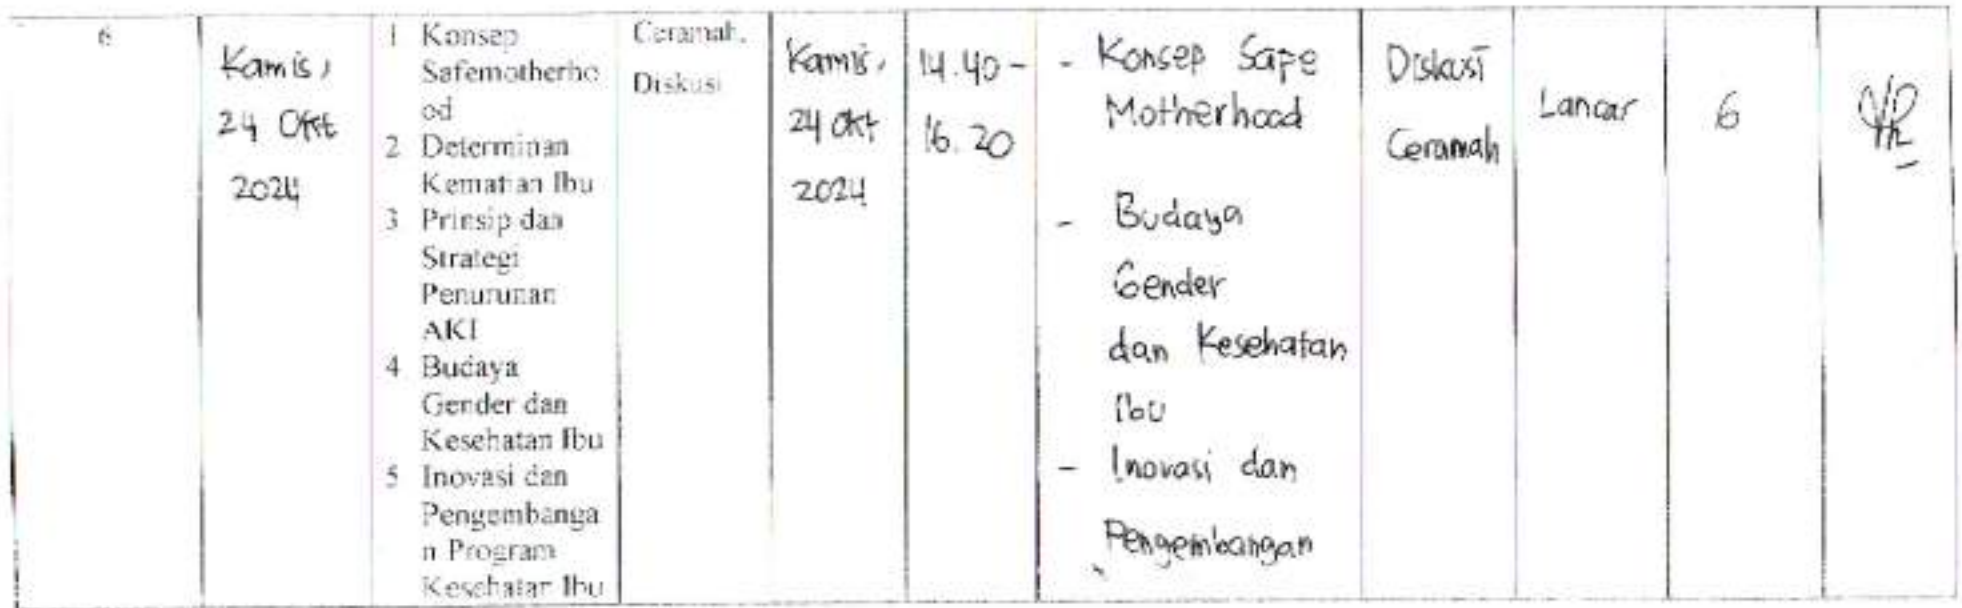 6
Kamis,
24 Okt
2024
1 Konsep
Safemotherho
od
2 Determinan
Kematian Ibu
3 Prinsip dan
Strategi
Penurunan
AKI
4 Budaya
Gender dan
Kesehatan Ibu
5 Inovasi dan
Pengembanga
n Program
Kesehatan Ibu
Ceramah,
Diskusi
Kamis,
24 Okt
2024
14.40 -
16.20
- Konsep Sape
Motherhood
- Budaya
Gender
dan Kesehatan
Ibu
- Inovasi dan
Pengembangan
Diskusi
Ceramah
Lancar
6